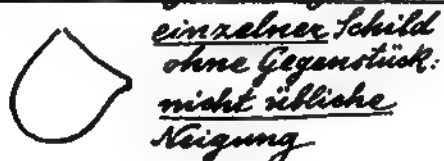 einzelner Schild
ohne Gegenstück:
nicht übliche
Neigung